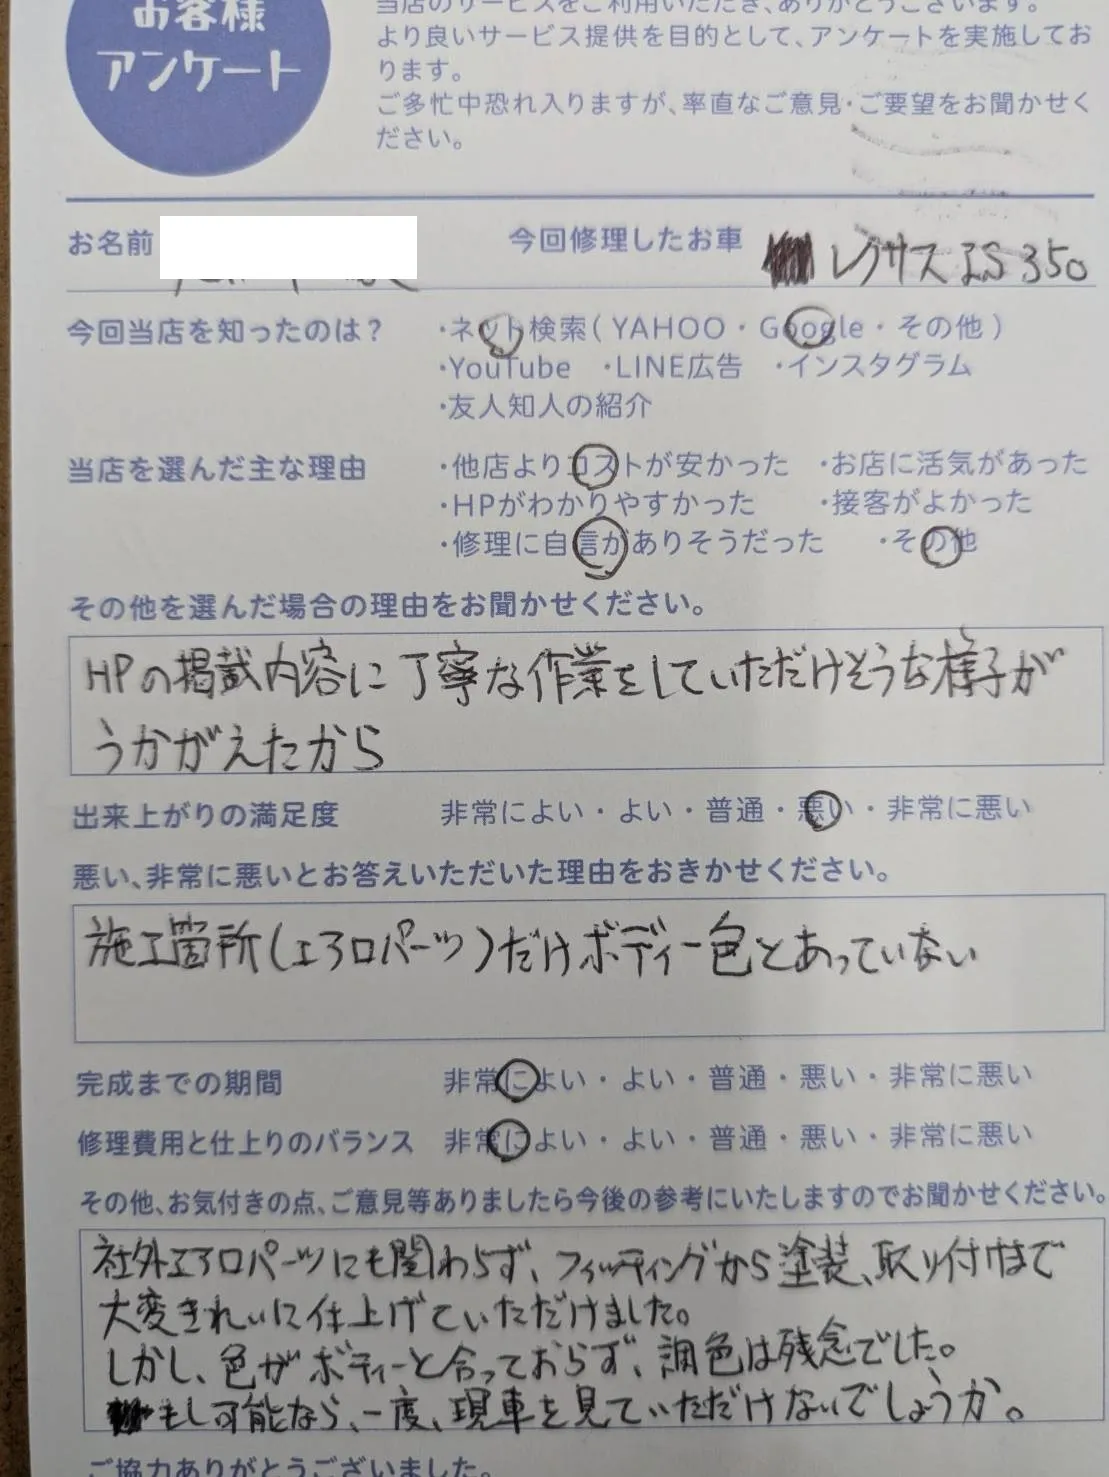 お客様
アンケート
当店のサービスをご利用いただき、ありがとうございます。
より良いサービス提供を目的として、アンケートを実施してお
ります。
ご多忙中恐れ入りますが、率直なご意見・ご要望をお聞かせく
ださい。
お名前
今回修理したお車 レクサスIS350
今回当店を知ったのは？ ・ネット検索( YAHOO・Google・その他 )
・YouTube ・LINE広告 ・インスタグラム
・友人知人の紹介
当店を選んだ主な理由 ・他店よりコストが安かった ・お店に活気があった
・HPがわかりやすかった ・接客がよかった
・修理に自信がありそうだった ・その他
その他を選んだ場合の理由をお聞かせください。
HPの掲載内容に丁寧な作業をしていただけそうな様子が
うかがえたから
出来上がりの満足度 非常によい・よい・普通・悪い・非常に悪い
悪い、非常に悪いとお答えいただいた理由をおきかせください。
施工箇所(エアロパーツ)だけボディー色とあっていない
完成までの期間 非常によい・よい・普通・悪い・非常に悪い
修理費用と仕上りのバランス 非常によい・よい・普通・悪い・非常に悪い
その他、お気付きの点、ご意見等ありましたら今後の参考にいたしますのでお聞かせください。
社外エアロパーツにも関わらず、フィッティングから塗装、取り付けまで
大変きれいに仕上げていただけました。
しかし、色がボディーと合っておらず、調色は残念でした。
もし可能なら、一度、現車を見ていただけないでしょうか。
ご協力ありがとうございました。